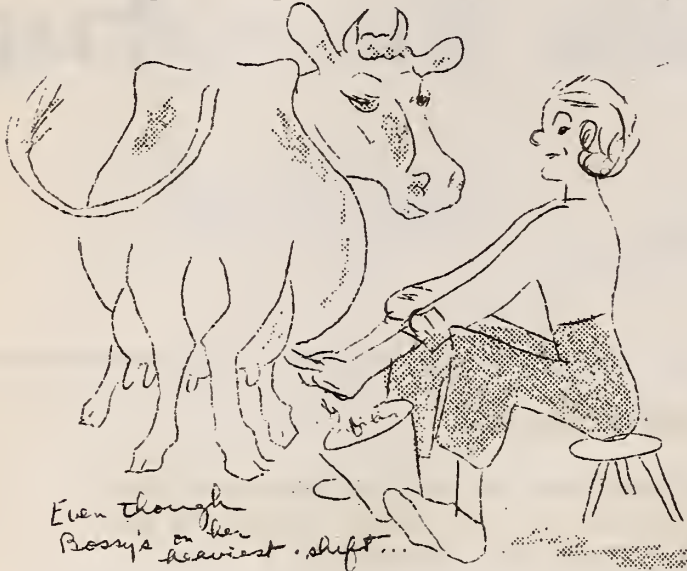 Even though
Bossy's on her
heaviest shift...